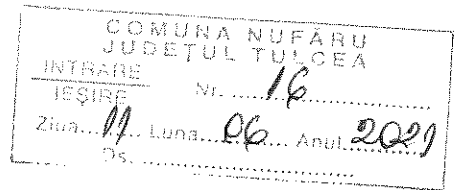 COMUNA NUFĂRU
JUDEŢUL TULCEA
INTRARE
IEŞIRE Nr. ...16...
Ziua...11...Luna...06...Anul.2021
Ds. ...